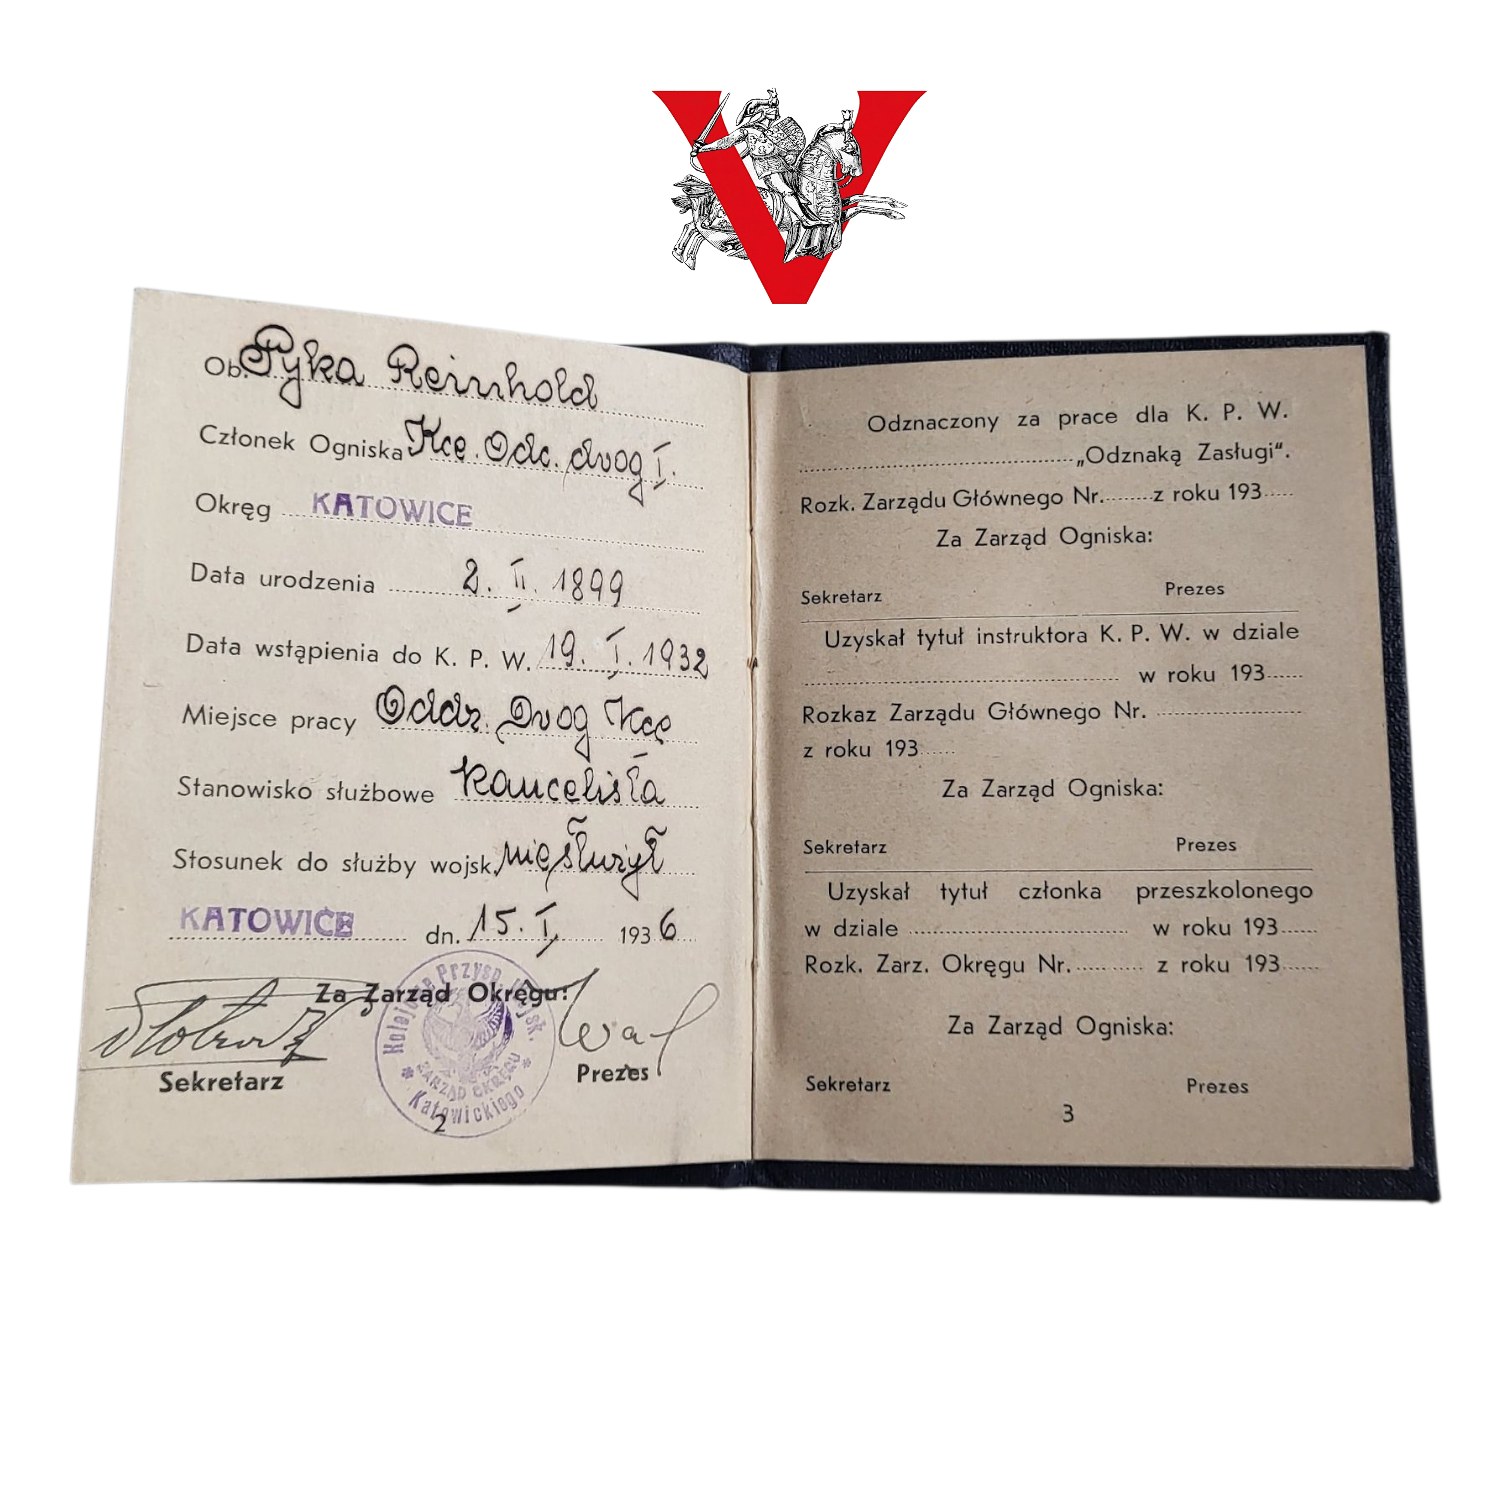 V
Ob. Pyka Reinhold
Członek Ogniska Kce. Odc. drog I.
Okręg KATOWICE
Data urodzenia 2. II. 1899
Data wstąpienia do K. P. W. 19. I. 1932
Miejsce pracy Oddz. Drog Kce
Stanowisko służbowe Kancelista
Stosunek do służby wojsk. nie służył
KATOWICE dn. 15. I. 1936
Za Zarząd Okręgu:
Sekretarz Prezes
Kolejowe Przysp. Wojsk.
* ZARZĄD OKRĘGU *
Katowickiego
2
Odznaczony za prace dla K. P. W.
„Odznaką Zasługi“.
Rozk. Zarządu Głównego Nr. z roku 193
Za Zarząd Ogniska:
Sekretarz Prezes
Uzyskał tytuł instruktora K. P. W. w dziale
w roku 193
Rozkaz Zarządu Głównego Nr.
z roku 193
Za Zarząd Ogniska:
Sekretarz Prezes
Uzyskał tytuł członka przeszkolonego
w dziale w roku 193
Rozk. Zarz. Okręgu Nr. z roku 193
Za Zarząd Ogniska:
Sekretarz Prezes
3